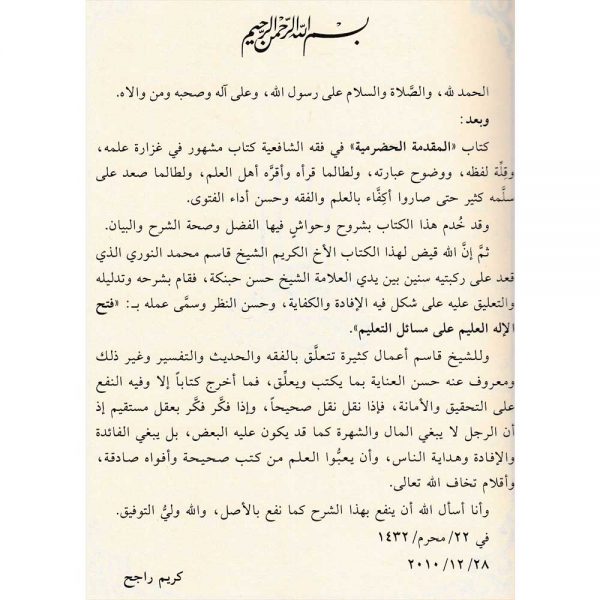 بسم الله الرحمن الرحيم
الحمد لله، والصَّلاة والسلام على رسول الله، وعلى آله وصحبه ومن والاه.
وبعد:
كتاب «المقدمة الحضرمية» في فقه الشافعية كتاب مشهور في غزارة علمه،
وقِلَّة لفظه، ووضوح عبارته، ولطالما قرأه وأقرَّه أهل العلم، ولطالما صعد على
سلَّمه كثير حتى صاروا أكِفَّاء بالعلم والفقه وحسن أداء الفتوى.
وقد خُدم هذا الكتاب بشروح وحواشٍ فيها الفضل وصحة الشرح والبيان.
ثمَّ إنَّ الله قيض لهذا الكتاب الأخ الكريم الشيخ قاسم محمد النوري الذي
قعد على ركبتيه سنين بين يدي العلامة الشيخ حسن حبنكة، فقام بشرحه وتدليله
والتعليق عليه على شكل فيه الإفادة والكفاية، وحسن النظر وسمَّى عمله بـ: «فتح
الإله العليم على مسائل التعليم».
وللشيخ قاسم أعمال كثيرة تتعلَّق بالفقه والحديث والتفسير وغير ذلك
ومعروف عنه حسن العناية بما يكتب ويعلِّق، فما أخرج كتاباً إلا وفيه النفع
على التحقيق والأمانة، فإذا نقل نقل صحيحاً، وإذا فكَّر فكَّر بعقل مستقيم إذ
أن الرجل لا يبغي المال والشهرة كما قد يكون عليه البعض، بل يبغي الفائدة
والإفادة وهداية الناس، وأن يعبُّوا العلم من كتب صحيحة وأفواه صادقة،
وأقلام تخاف الله تعالى.
وأنا أسأل الله أن ينفع بهذا الشرح كما نفع بالأصل، والله وليُّ التوفيق.
في ٢٢/ محرم/ ١٤٣٢
٢٨/ ١٢/ ٢٠١٠
كريم راجح